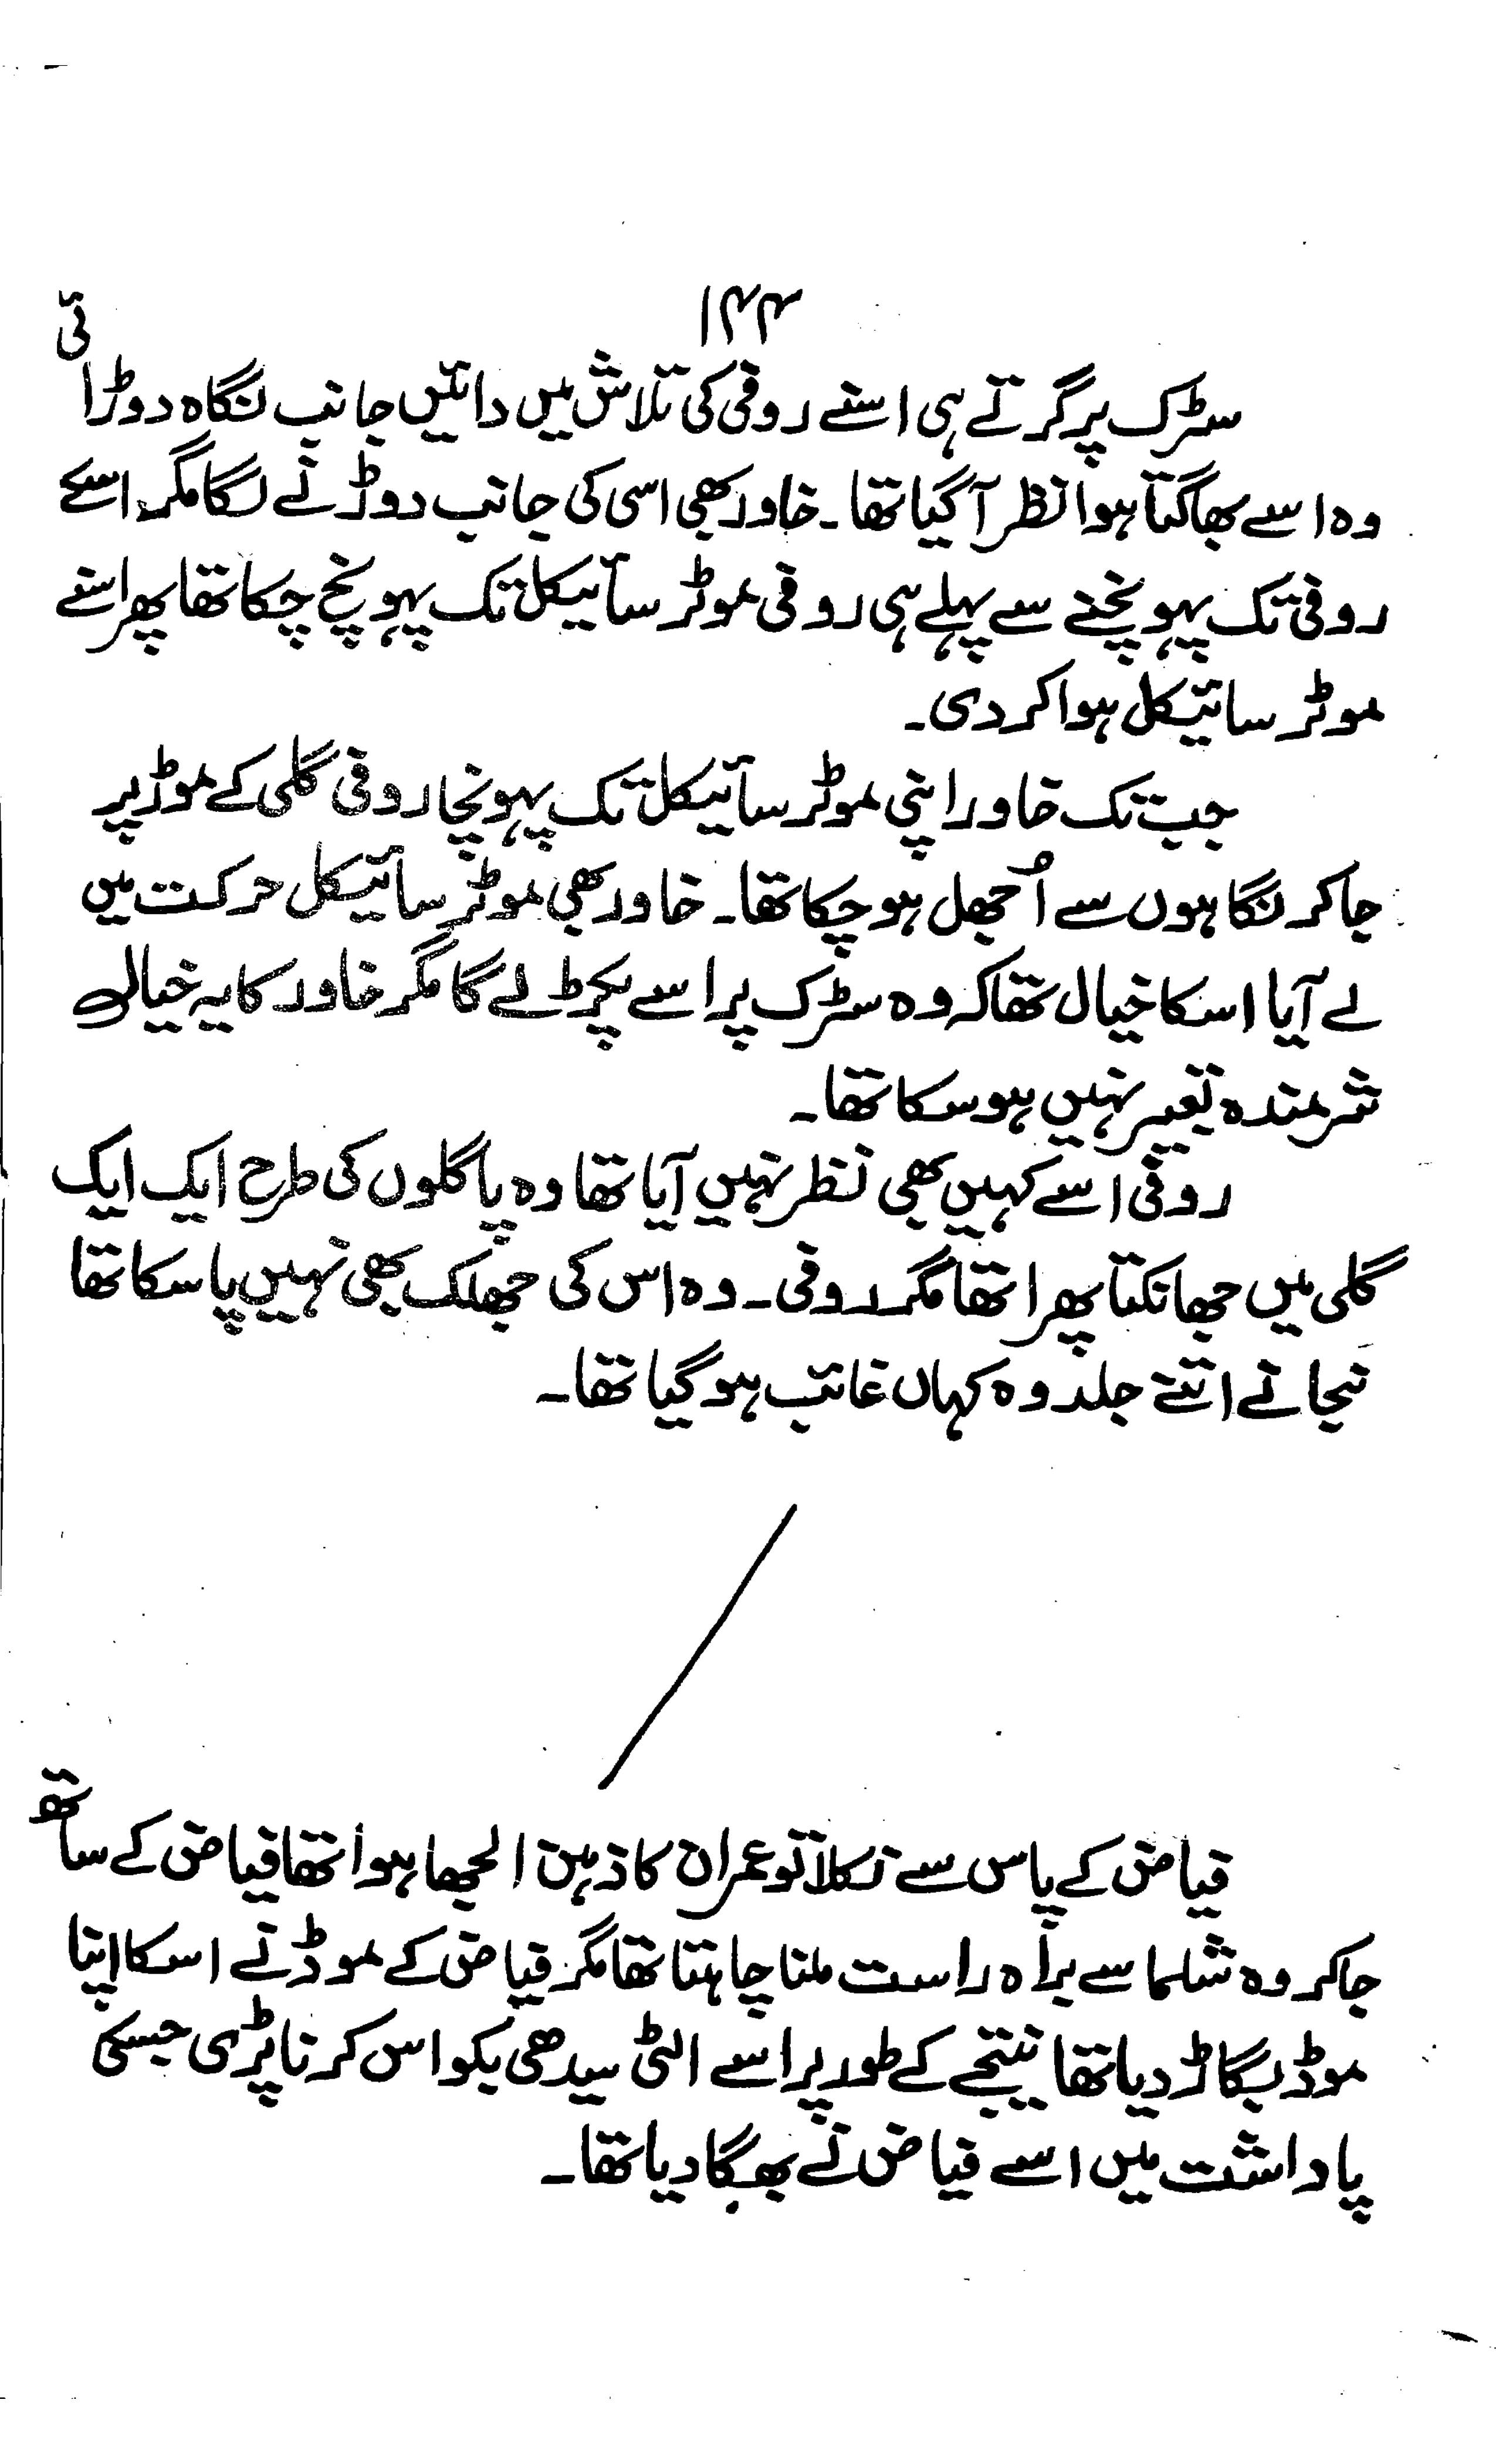 ۱۴۴
سڑک پر گرتے ہی اسنے روفی کی تلاش میں دائیں جانب نگاہ دوڑائی
وہ اسے بھاگتا ہوا نظر آ گیا تھا ۔ خاور بھی اسی کی جانب دوڑنے لگا مگر اسکے
روفی تک پہونچنے سے پہلے ہی روفی موٹر سائیکل تک پہونچ چکا تھا پھر اسنے
موٹر سائیکل ہوا کر دی ۔
جب تک خاور اپنی موٹر سائیکل تک پہونچا روفی گلی کے موڑ پر
جا کر نگاہوں سے اُجھل ہو چکا تھا ۔ خاور بھی موٹر سائیکل حرکت میں
لے آیا اسکا خیال تھا کہ وہ سڑک پر اسے پکڑ لے گا مگر خاور کا یہ خیال
شرمندہ تعبیر نہیں ہو سکا تھا ۔
روفی اسے کہیں بھی نظر نہیں آیا تھا وہ پاگلوں کی طرح ایک ایک
گلی میں جھانکتا پھرا تھا مگر روفی ۔ وہ اس کی جھلک بھی نہیں پا سکا تھا
نجانے اتنے جلد وہ کہاں غائب ہو گیا تھا ۔
فیاض کے پاس سے نکلا تو عمران کا ذہن الجھا ہوا تھا فیاض کے ساتھ
جا کر وہ شلما سے براہ راست ملنا چاہتا تھا مگر فیاض کے موڈ نے اسکا اپنا
موڈ بگاڑ دیا تھا نتیجے کے طور پر اسے الٹی سیدھی بکواس کرنا پڑی جسکی
پاداشت میں اسے فیاض نے بھگا دیا تھا ۔